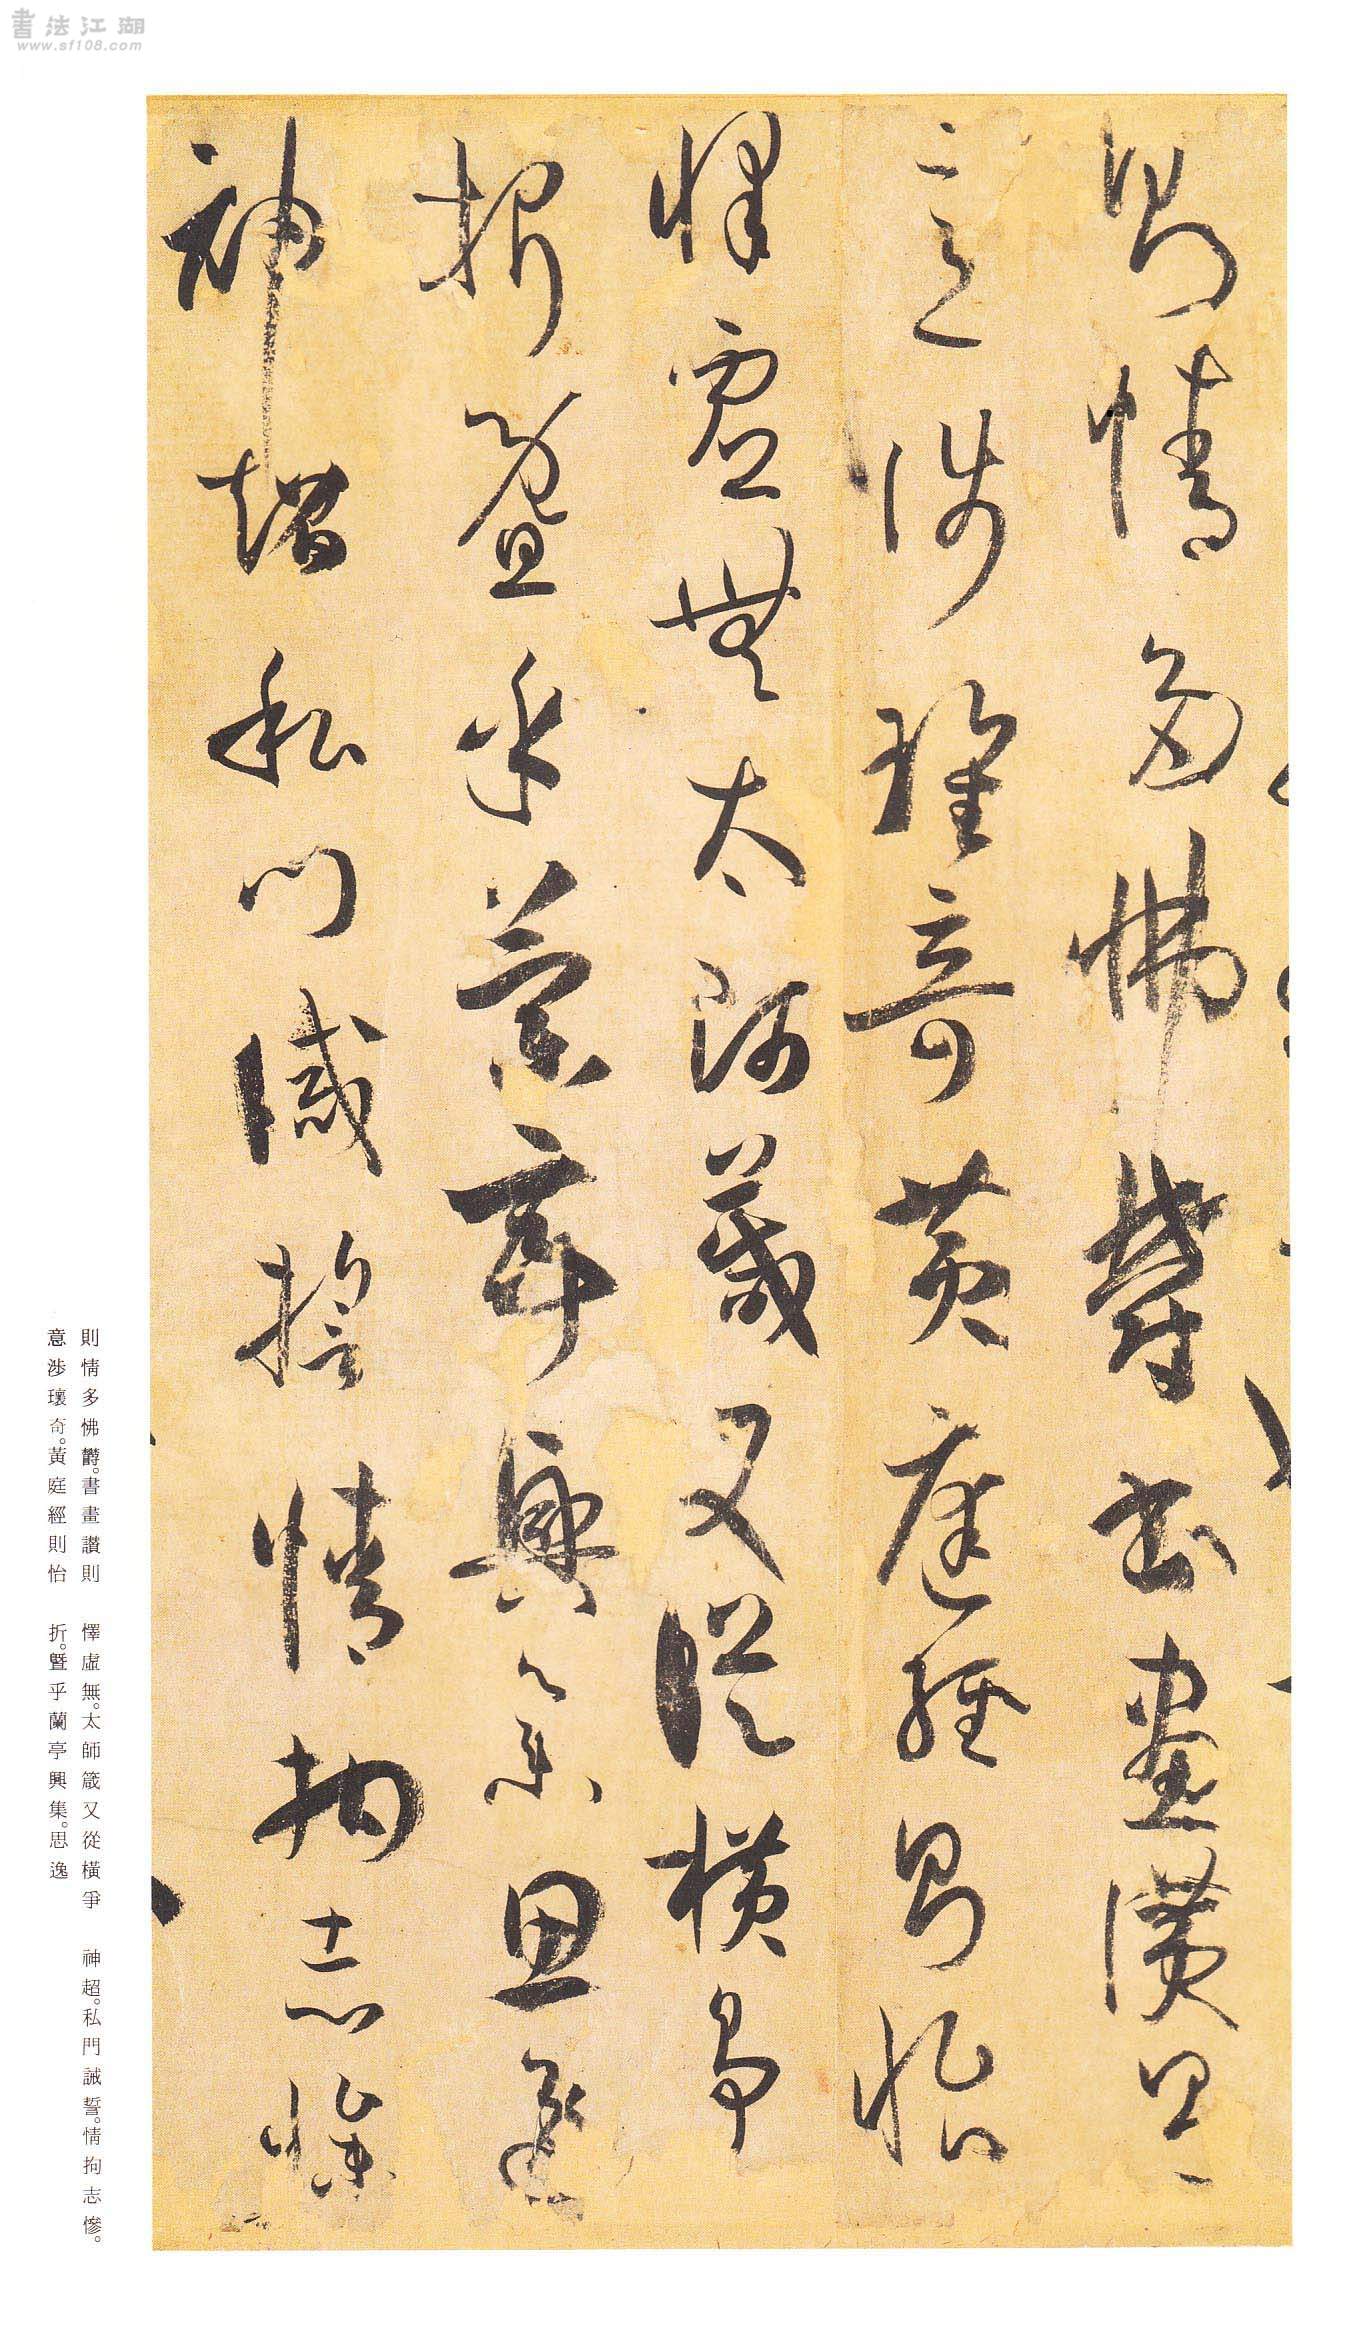 書法江湖
www.sf108.com
則情多怫欝書畫讚則
意涉瓌奇黃庭經則怡
懌虛無太師箴又從橫爭
折暨乎蘭亭興集思逸
神超私門誡誓情拘志慘
則情多怫欝。書畫讚則
意涉瓌奇。黃庭經則怡
懌虛無。太師箴又從橫爭
折。暨乎蘭亭興集。思逸
神超。私門誡誓。情拘志慘。